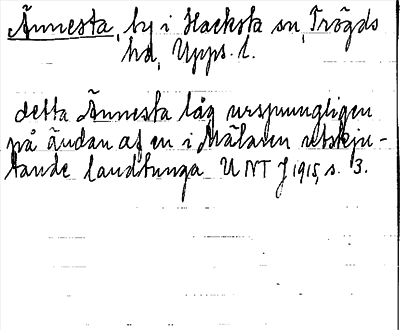 Ännesta, by i Hacksta sn, Trögds
hd, Upps. l.
detta Ännesta låg ursprungligen
på ändan af en i Mälaren utskju-
tande landtunga UNT J 1915, s. 3.